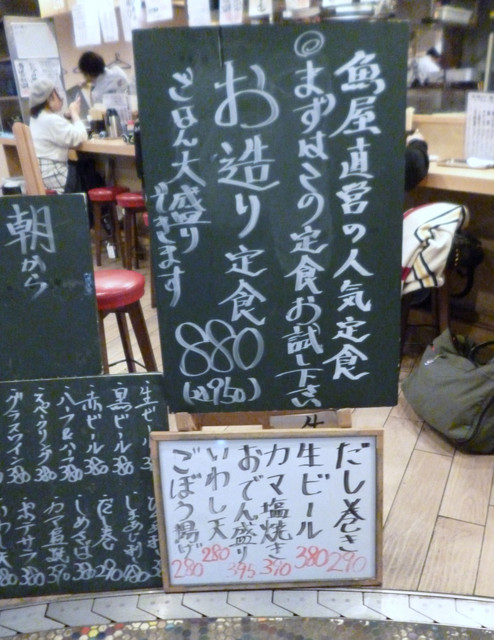 魚屋直営の人気定食
◎まずはこの定食お試し下さい
お造り定食
880
(税込950)
ごはん大盛り
できます
朝から
だし巻き 290
生ビール 380
カマ塩焼き 390
おでん盛り 395
いわし天 280
ごぼう揚げ 280
黒ビール 380
赤ビール 380
ハーフ&ハーフ 380
スパークリング 380
グラスワイン
だし巻 290
しめさば 380
カマ塩焼
ポテサラ